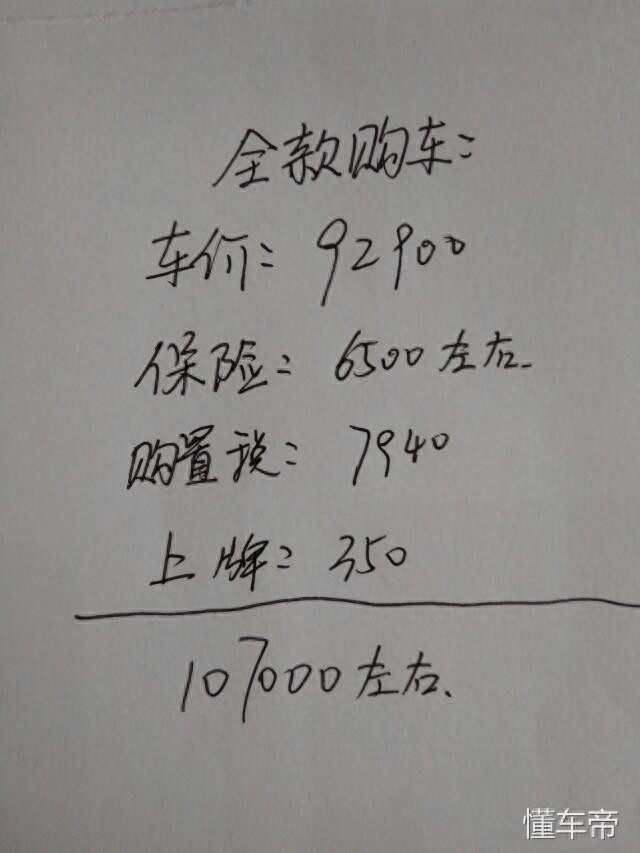 全款购车:
车价: 92900
保险: 6500左右.
购置税: 7940
上牌: 350
107000左右.
懂车帝